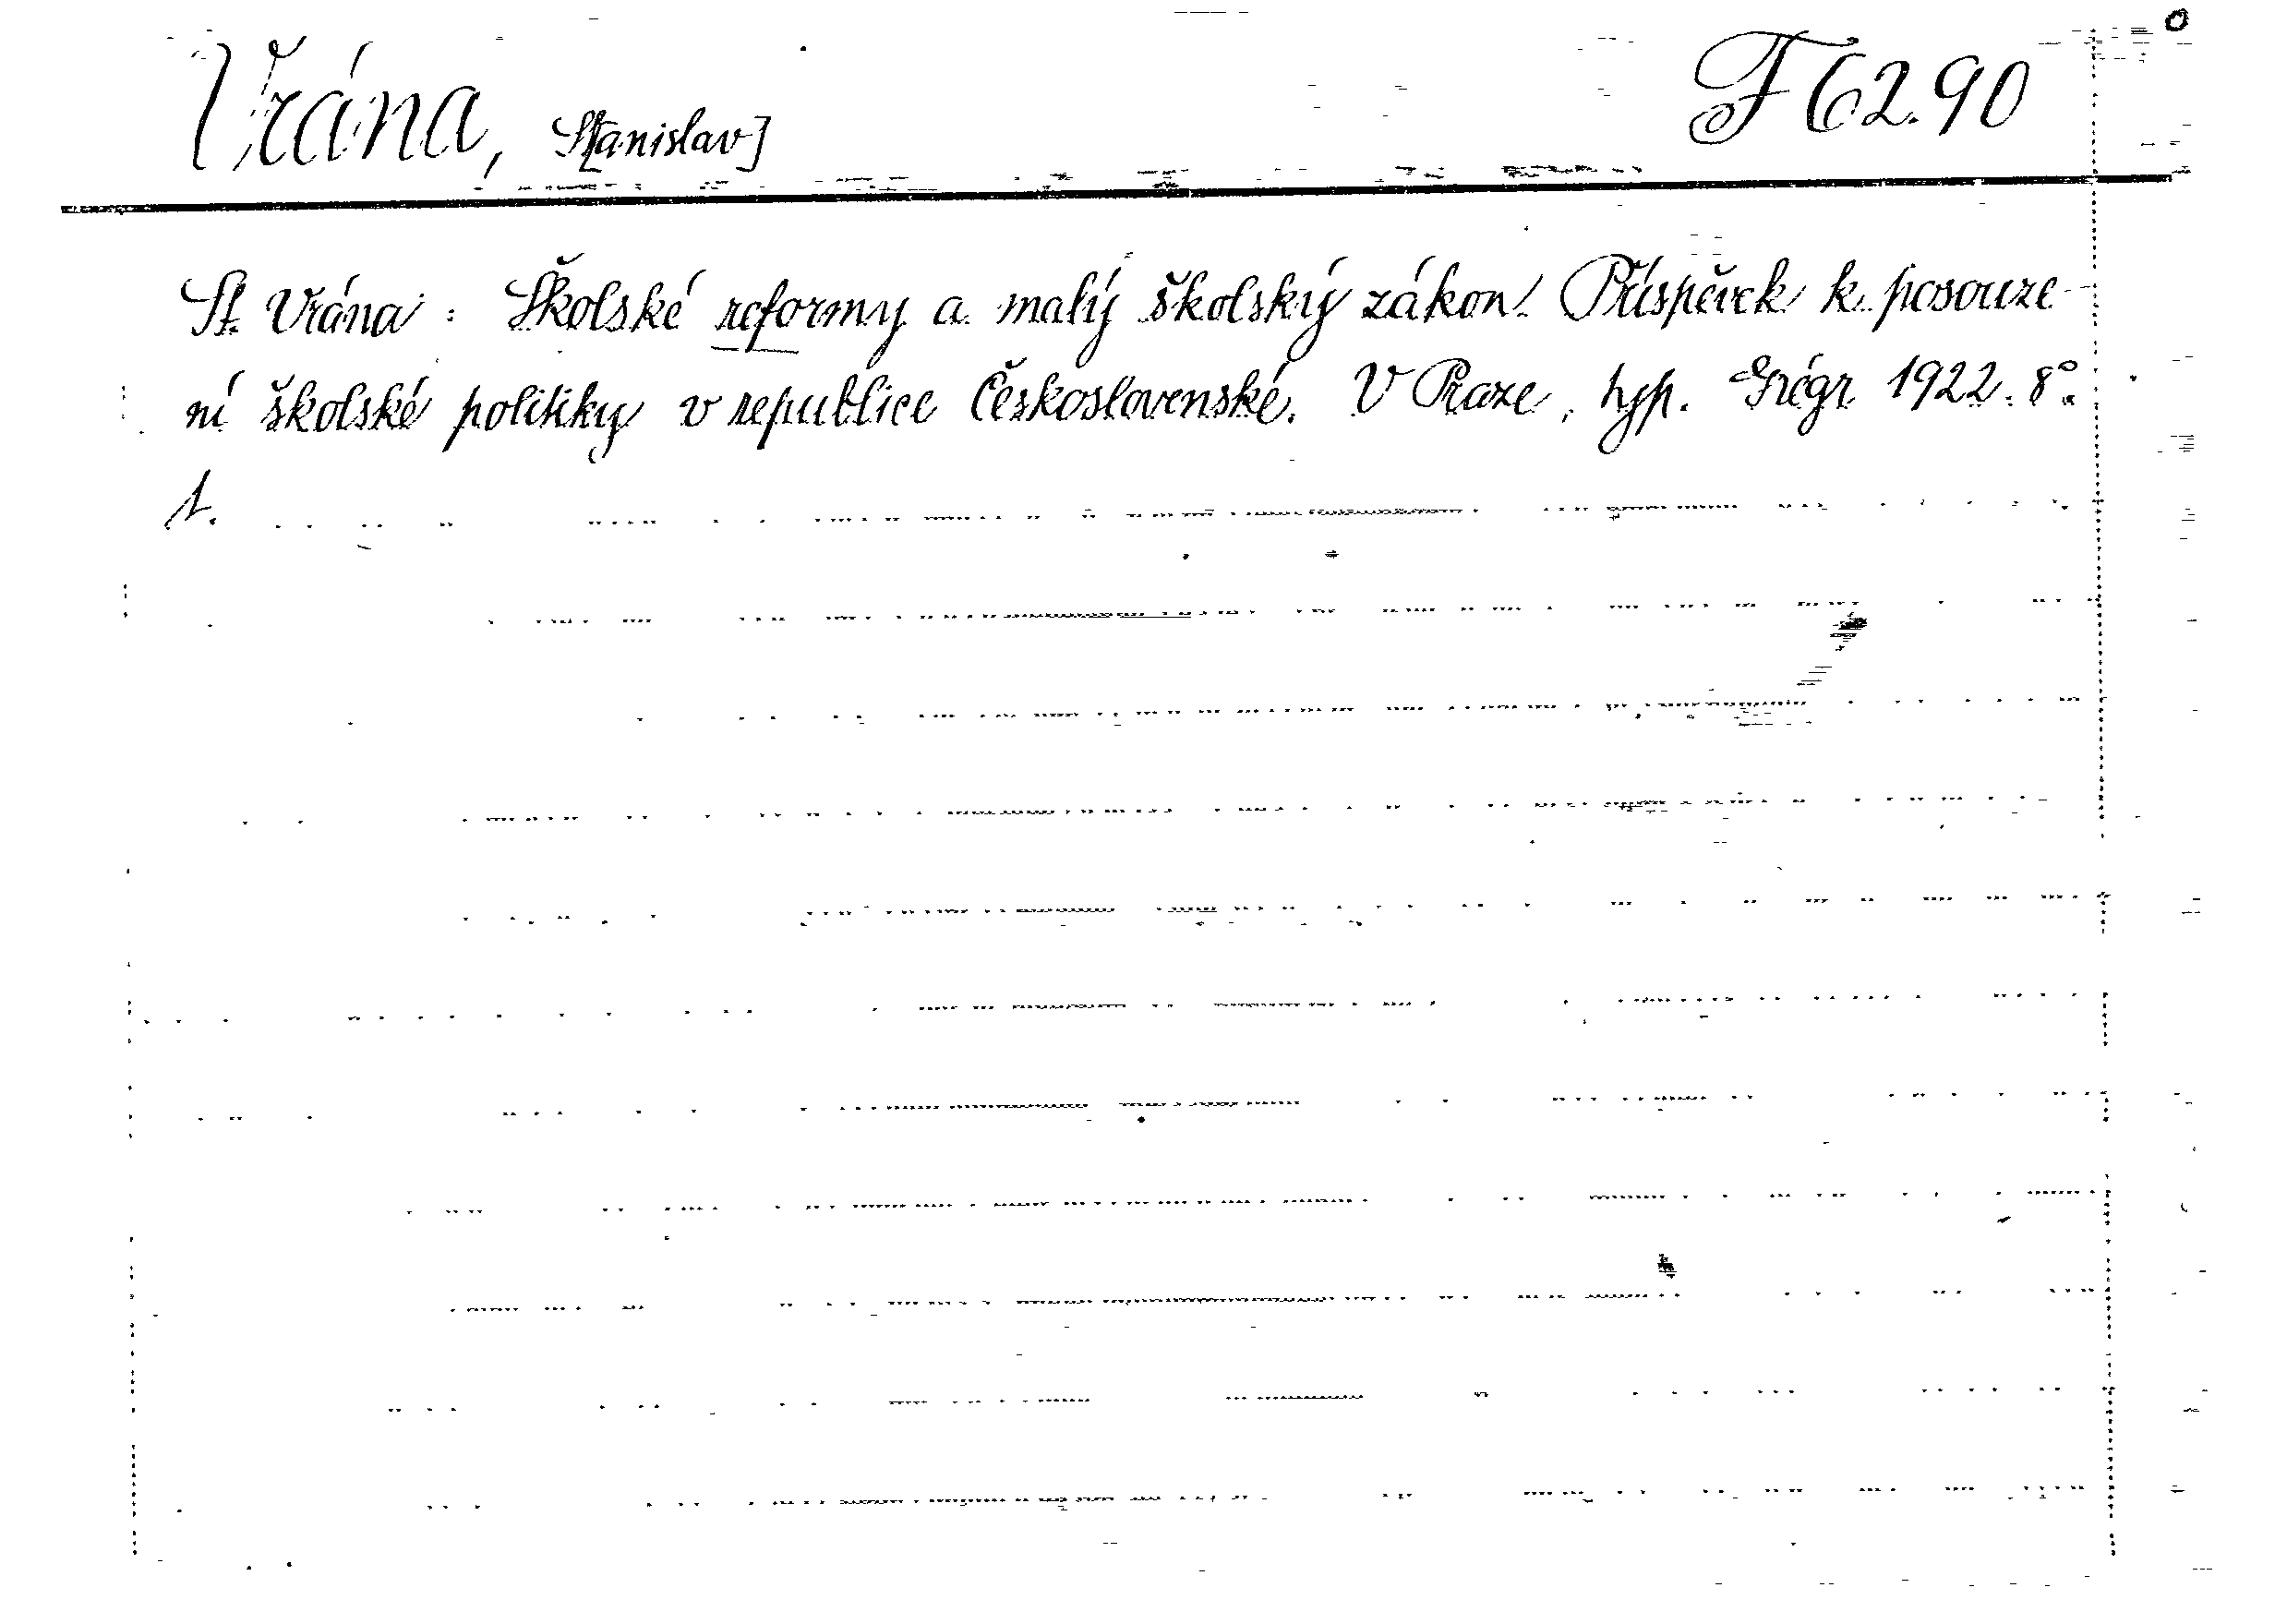 Vrána, St[anislav]
F 62.90
St. Vrána: Školské reformy a malý školský zákon. Příspěvek k posouze-
ní školské politiky v republice Československé. V Praze, typ. Grégr 1922. 8°.
1.